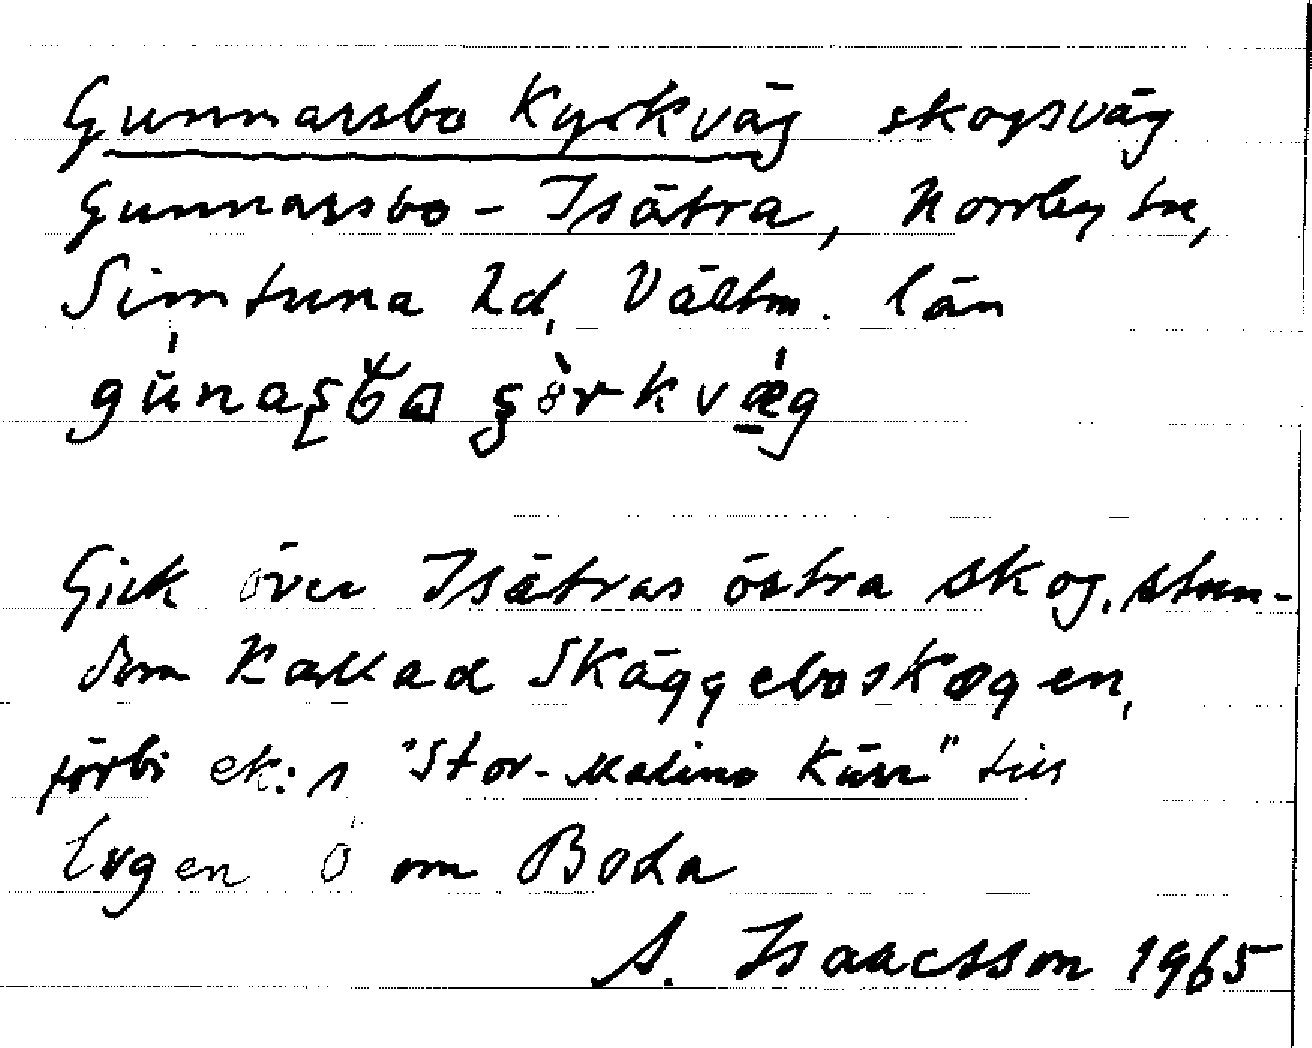 Gunnarsbo Kyrkväg skogsväg
Gunnarsbo - Isätra, Norrby sn,
Simtuna hd, Västm. län
Gick över Isätras östra skog, stun-
dom kallad Skäggeboskogen,
förbi ek:s "Stor-Malins Kärr" till
lvgen Ö om Boda
A. Isaacsson 1965